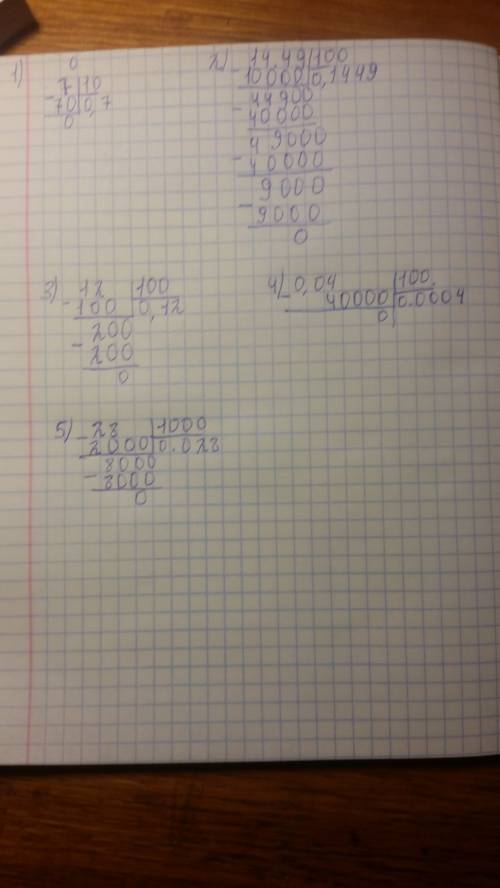 0
1) - 7 | 10
70 0,7
0
2) - 14,49 | 100
10000 0,1449
44900
- 40000
49000
- 40000
9000
- 9000
0
3) - 12 | 100
100 0,12
200
- 200
0
4) - 0,04 | 100
40000 0.0004
0
5) - 23 | 1000
2000 0.023
3000
- 3000
0